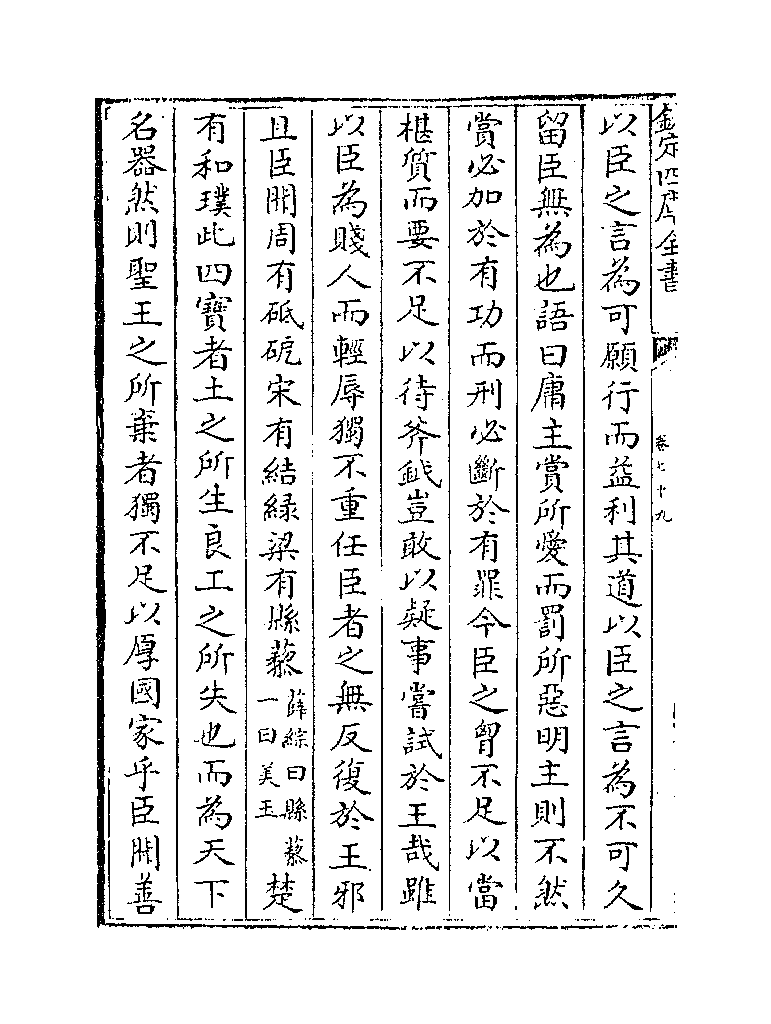 欽定四庫全書
卷七十九
以臣之言為可願行而益利其道以臣之言為不可久
留臣無為也語曰庸主賞所愛而罰所惡明主則不然
賞必加於有功而刑必斷於有罪今臣之胷不足以當
椹質而要不足以待斧鉞豈敢以疑事嘗試於王哉雖
以臣為賤人而輕辱獨不重任臣者之無反復於王邪
且臣聞周有砥砨宋有結緑梁有縣藜薛綜曰縣藜一曰美玉楚
有和璞此四寶者土之所生良工之所失也而為天下
名器然則聖王之所棄者獨不足以厚國家乎臣聞善